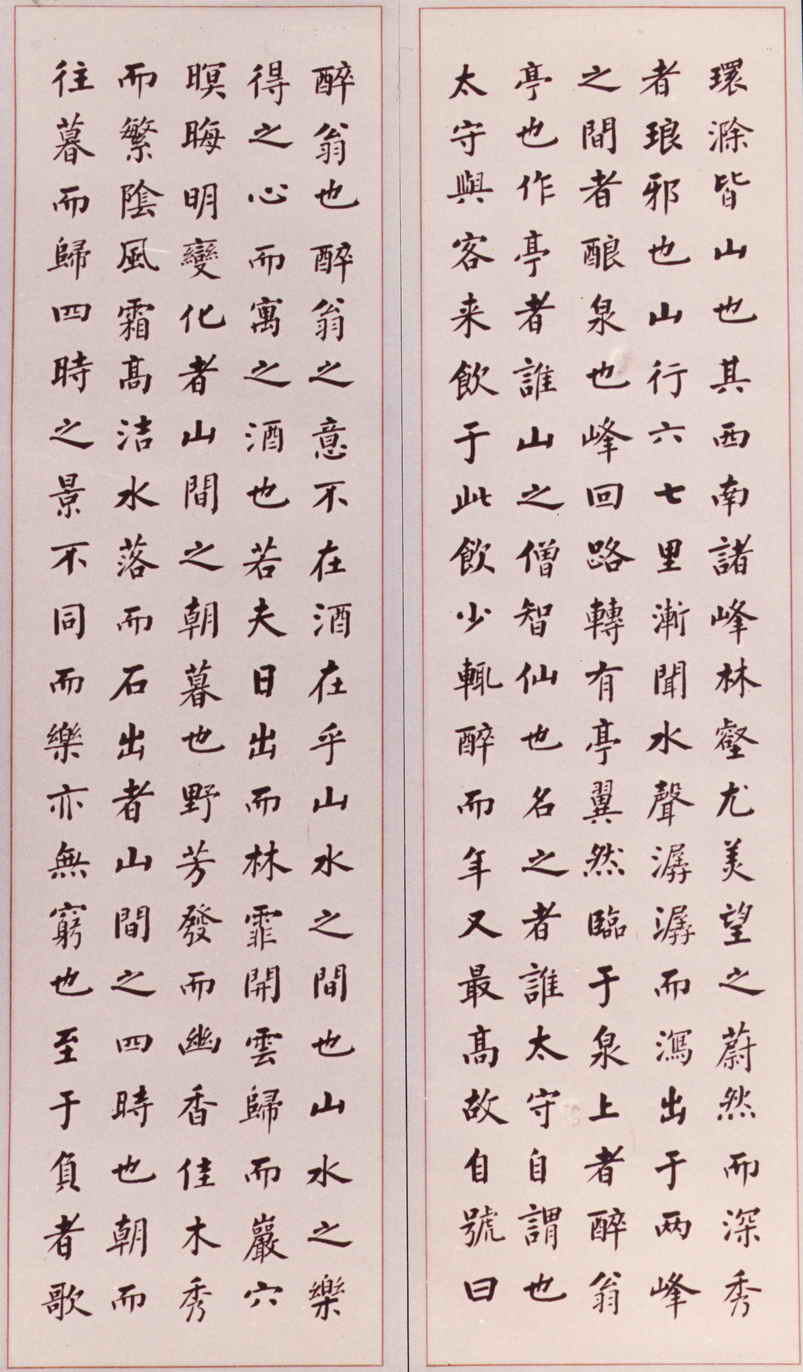 環滁皆山也其西南諸峰林壑尤美望之蔚然而深秀
者琅邪也山行六七里漸聞水聲潺潺而瀉出于两峰
之間者酿泉也峰回路轉有亭翼然臨于泉上者醉翁
亭也作亭者誰山之僧智仙也名之者誰太守自謂也
太守與客来飲于此飲少輒醉而年又最高故自號曰
醉翁也醉翁之意不在酒在乎山水之間也山水之樂
得之心而寓之酒也若夫日出而林霏開雲歸而巖穴
暝晦明變化者山間之朝暮也野芳發而幽香佳木秀
而繁陰風霜高洁水落而石出者山間之四時也朝而
往暮而歸四時之景不同而樂亦無窮也至于負者歌